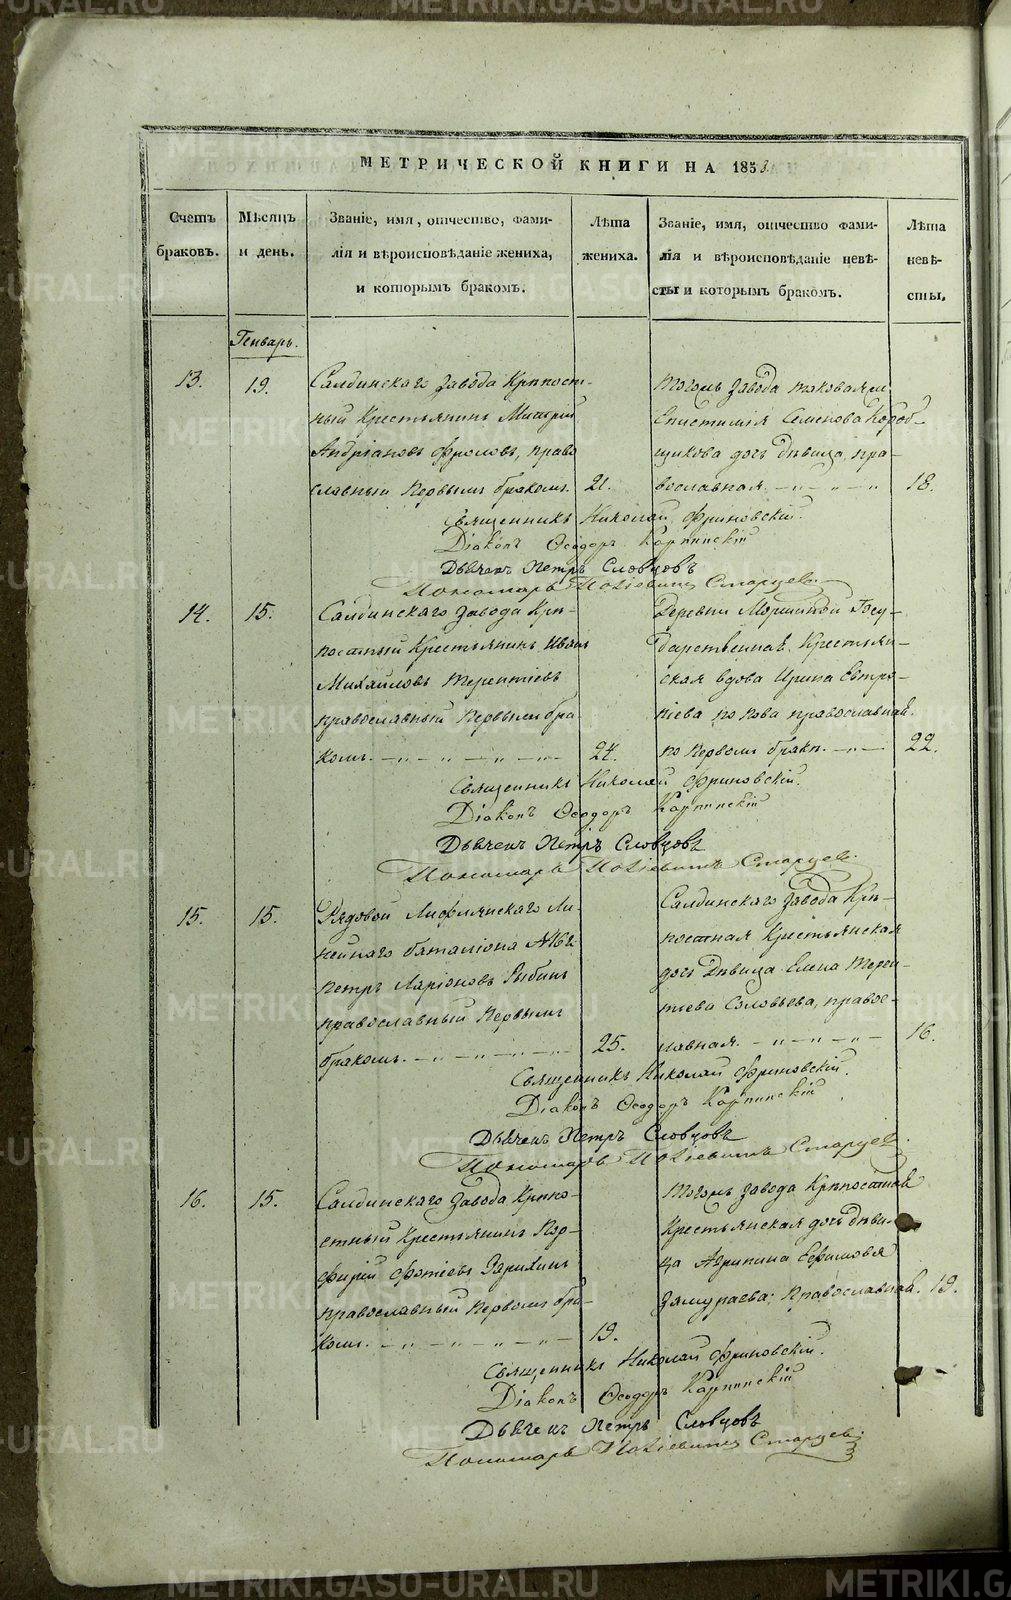 METRIKI.GASO-URAL.RU
МЕТРИЧЕСКОЙ КНИГИ НА 1853.
Счетъ браковъ.
Мѣсяцъ и день.
Званіе, имя, отчество, фами-
лія и вѣроисповѣданіе жениха,
и которымъ бракомъ.
Лѣта жениха.
Званіе, имя, отчество фами-
лія и вѣроисповѣданіе невѣ-
сты и которымъ бракомъ.
Лѣта невѣ-
сты.
Генварь.
13.
19.
Салдинскаго завода Крѣпост-
ный Крестьянинъ
Андріановъ Фроловъ, право
славный первымъ бракомъ.
21.
тогожъ завода таковая
Епистимія Семенова Короб-
щикова дочь дѣвица, пра-
вославная.
18.
Священникъ Николай Фриновскій.
Діаконъ Ѳеодоръ Карпинскій
Дьячекъ Петръ Словцовъ
Пономарь Старцев
14.
15.
Салдинскаго завода Крѣ-
постный Крестьянинъ Иванъ
Михайловъ Терентіевъ
православный первымъ бра
комъ.
24.
Деревни Моршиной Госу-
дарственная Крестьян-
ская вдова Ирина Евтро-
піева православная.
по первомъ бракѣ.
22.
Священникъ Николай Фриновскій.
Діаконъ Ѳеодоръ Карпинскій
Дьячекъ Петръ Словцовъ
Пономарь Старцев
15.
15.
Рядовой Лифляндскаго Ли-
нейнаго баталіона
Петръ Ларіоновъ Рыбинъ
православный первымъ
бракомъ.
25.
Салдинскаго завода Крѣ-
постная Крестьянская
дочь дѣвица Елена Терен-
тьева Соловьева, правос-
лавная.
16.
Священникъ Николай Фриновскій.
Діаконъ Ѳеодоръ Карпинскій
Дьячекъ Петръ Словцовъ
Пономарь Старцев
16.
15.
Салдинскаго завода Крѣпо-
стный Крестьянинъ Пор-
фирій Фотіевъ
православный первымъ бра-
комъ.
19.
тогожъ завода Крѣпостная
Крестьянская дочь дѣви-
ца Агрипина Ефимовья
Замураева; православная.
19.
Священникъ Николай Фриновскій.
Діаконъ Ѳеодоръ Карпинскій
Дьячекъ Петръ Словцовъ
Пономарь Старцев